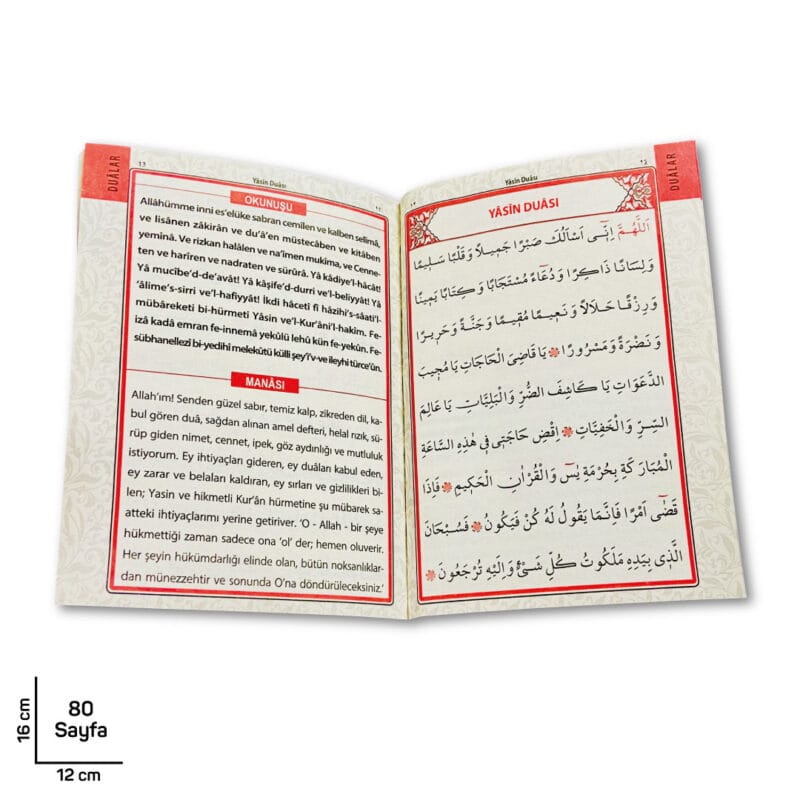 DUÂLAR
12
Yâsîn Duâsı
YÂSÎN DUÂSI
اَللّٰهُمَّ اِنّٖى اَسْاَلُكَ صَبْرًا جَمٖيلًا وَقَلْبًا سَلٖيمًا
وَلِسَانًا ذَاكِرًا وَدُعَاءً مُسْتَجَابًا وَكِتَابًا يَمٖينًا
وَرِزْقًا حَلَالًا وَنَعٖيمًا مُقٖيمًا وَجَنَّةً وَحَرٖيرًا
وَنَضْرَةً وَمَسْرُورًا يَا قَاضِىَ الْحَاجَاتِ يَا مُجٖيبَ
الدَّعَوَاتِ يَا كَاشِفَ الضُّرِّ وَالْبَلِيَّاتِ يَا عَالِمَ
السِّرِّ وَالْخَفِيَّاتِ اِقْضِ حَاجَتٖى فٖى هٰذِهِ السَّاعَةِ
الْمُبَارَكَةِ بِحُرْمَةِ يٰسٓ وَالْقُرْاٰنِ الْحَكٖيمِ فَاِذَا
قَضٰٓى اَمْرًا فَاِنَّمَا يَقُولُ لَهُ كُنْ فَيَكُونُ فَسُبْحَانَ
الَّذٖى بِيَدِهٖ مَلَكُوتُ كُلِّ شَىْءٍ وَاِلَيْهِ تُرْجَعُونَ
DUÂLAR
13
Yâsîn Duâsı
OKUNUŞU
Allâhümme inni es'elüke sabran cemîlen ve kalben selîmâ,
ve lisânen zâkirân ve du'â'en müstecâben ve kitâben
yemînâ. Ve rizkan halâlen ve na'îmen mukîma, ve Cenne-
ten ve harîren ve nadraten ve sürûrâ. Yâ kâdiye'l-hâcât!
Yâ mucîbe'd-de'avât! Yâ kâşife'd-durri ve'l-beliyyât! Yâ
'âlime's-sirri ve'l-hafiyyât! İkdi hâcetî fî hâzihi's-sâati'l-
mübâreketi bi-hürmeti Yâsin ve'l-Kur'âni'l-hakîm. Fe-
izâ kadâ emran fe-innemâ yekûlü lehû kün fe-yekûn. Fe-
sübhanellezî bi-yedihî melekûtü külli şey'iv-ve ileyhi türce'ûn.
MANÂSI
Allah'ım! Senden güzel sabır, temiz kalp, zikreden dil, ka-
bul gören duâ, sağdan alınan amel defteri, helal rızık, sü-
rüp giden nimet, cennet, ipek, göz aydınlığı ve mutluluk
istiyorum. Ey ihtiyaçları gideren, ey duâları kabul eden,
ey zarar ve belaları kaldıran, ey sırları ve gizlilikleri bi-
len; Yasin ve hikmetli Kur'ân hürmetine şu mübarek sa-
atteki ihtiyaçlarımı yerine getiriver. 'O - Allah - bir şeye
hükmettiği zaman sadece ona 'ol' der; hemen oluverir.
Her şeyin hükümdarlığı elinde olan, bütün noksanlıklar-
dan münezzehtir ve sonunda O'na döndürüleceksiniz.'
16 cm
80
Sayfa
12 cm